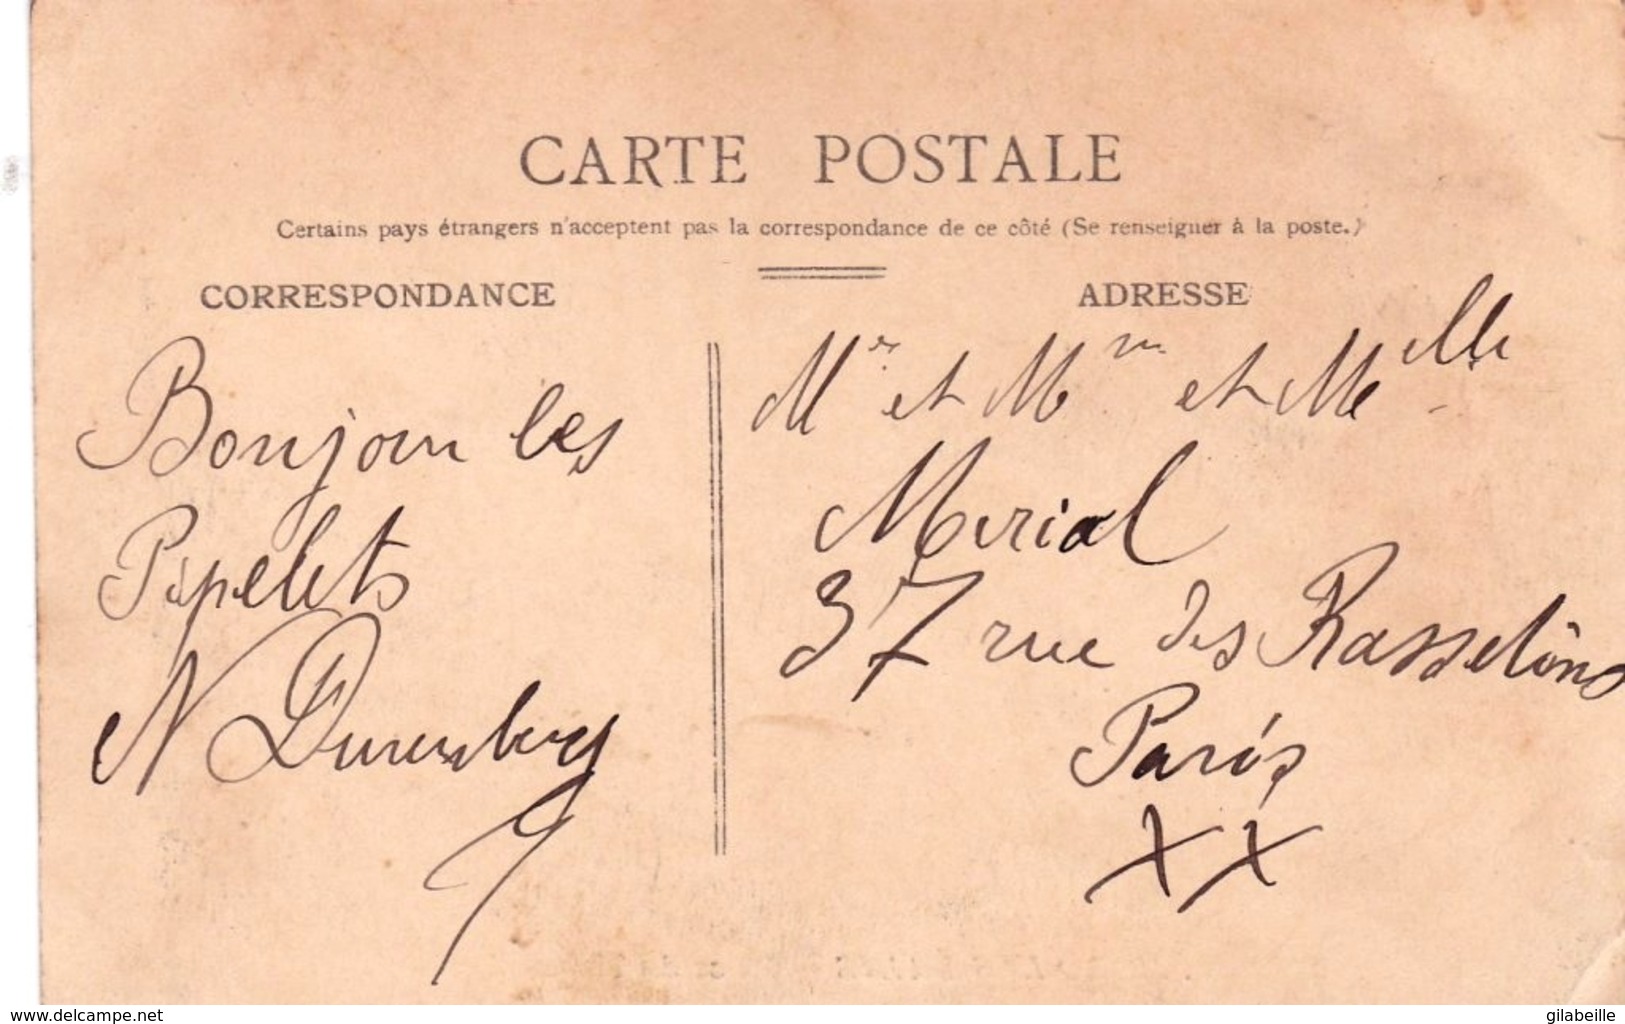 CARTE POSTALE
Certains pays étrangers n'acceptent pas la correspondance de ce côté (Se renseigner à la poste.)
CORRESPONDANCE
Bonjour les
Pipelets
N
ADRESSE
Mr et Mm et Melle
Merial
37 rue des Rasselins
Paris
XX
www.delcampe.net
gilabeille